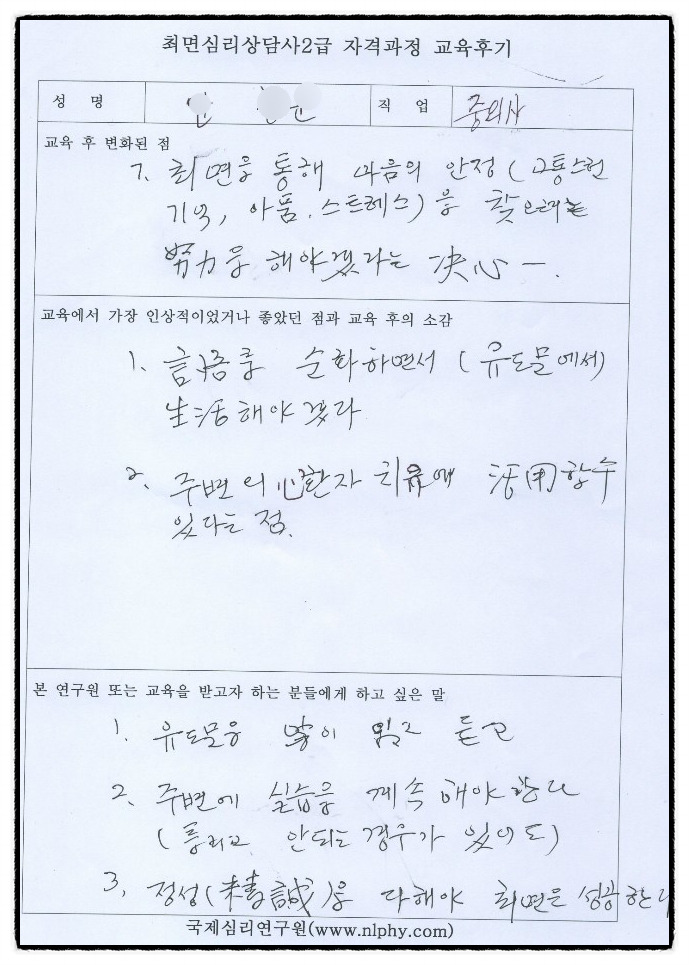 최면심리상담사2급 자격과정 교육후기
성 명
직 업 중의사
교육 후 변화된 점
1. 최면을 통해 마음의 안정(고통스런
기억, 아픔, 스트레스)을 찾
努力을 해야겠다는 决心 一.
교육에서 가장 인상적이었거나 좋았던 점과 교육 후의 소감
1. 言语를 순화하면서 (유도문에서)
生活해야 겠다
2. 주변의 心환자 치유에 活用할수
있다는 점.
본 연구원 또는 교육을 받고자 하는 분들에게 하고 싶은 말
1. 유도문을 많이 읽고 듣고
2. 주변에 실습을 계속 해야 한다
(틀리고 안되는 경우가 있어도)
3, 정성(精誠)을 다해야 최면은 성공한다
국제심리연구원(www.nlphy.com)